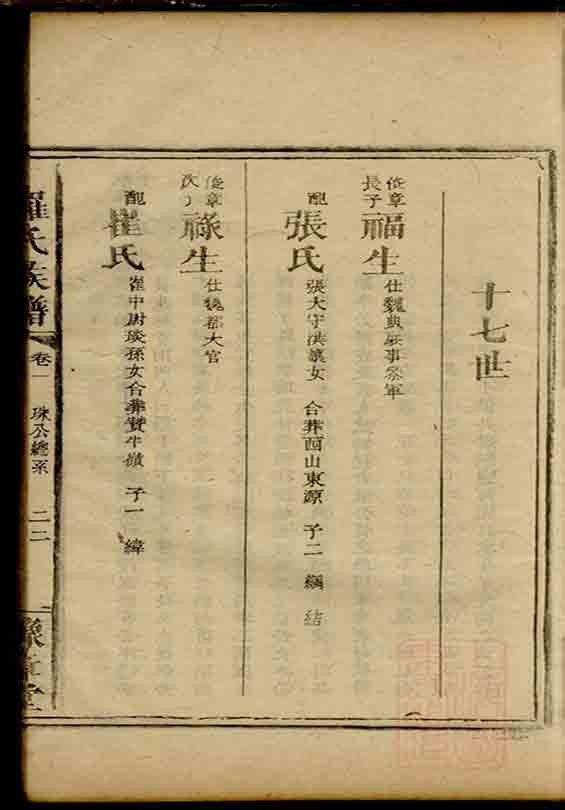 十七世
俊章
長子
福生 仕魏典兵事參軍
配
張氏 張太守洪讓女 合葬酉山東源 子二 綱 緒
俊章
次子
祿生 仕魏都大官
配
崔氏 崔中尉琰孫女合葬贊牛嶺 子一 緯
羅氏族譜 卷一 珠公總系 二二 豫章堂